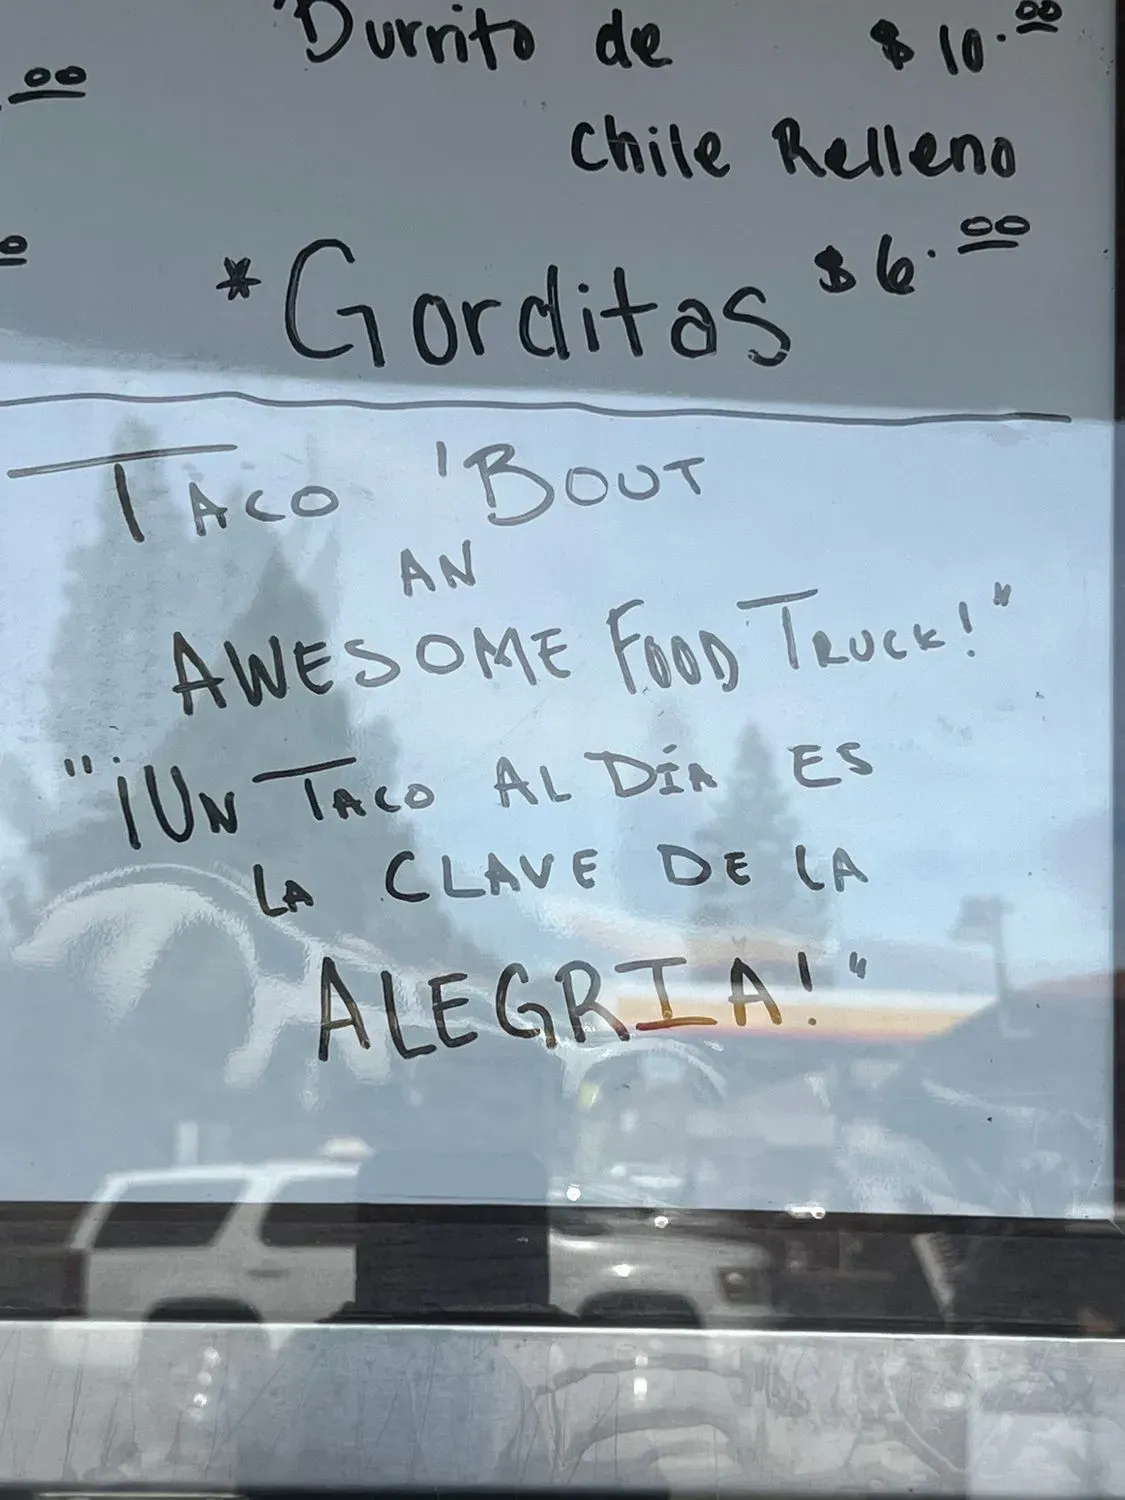 Burrito de $10.00
.00
Chile Relleno
*Gorditas $6.00
Taco 'Bout
an
Awesome Food Truck!"
"¡Un Taco al Día es
la clave de la
Alegria!"